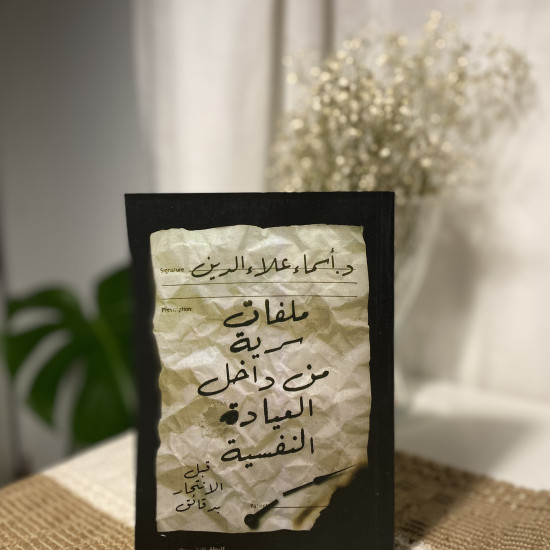 د. أسماء علاء الدين
Signature
Prescription:
ملفات
سرية
من داخل
العيادة
النفسية
قبل
الانتحار
بدقائق